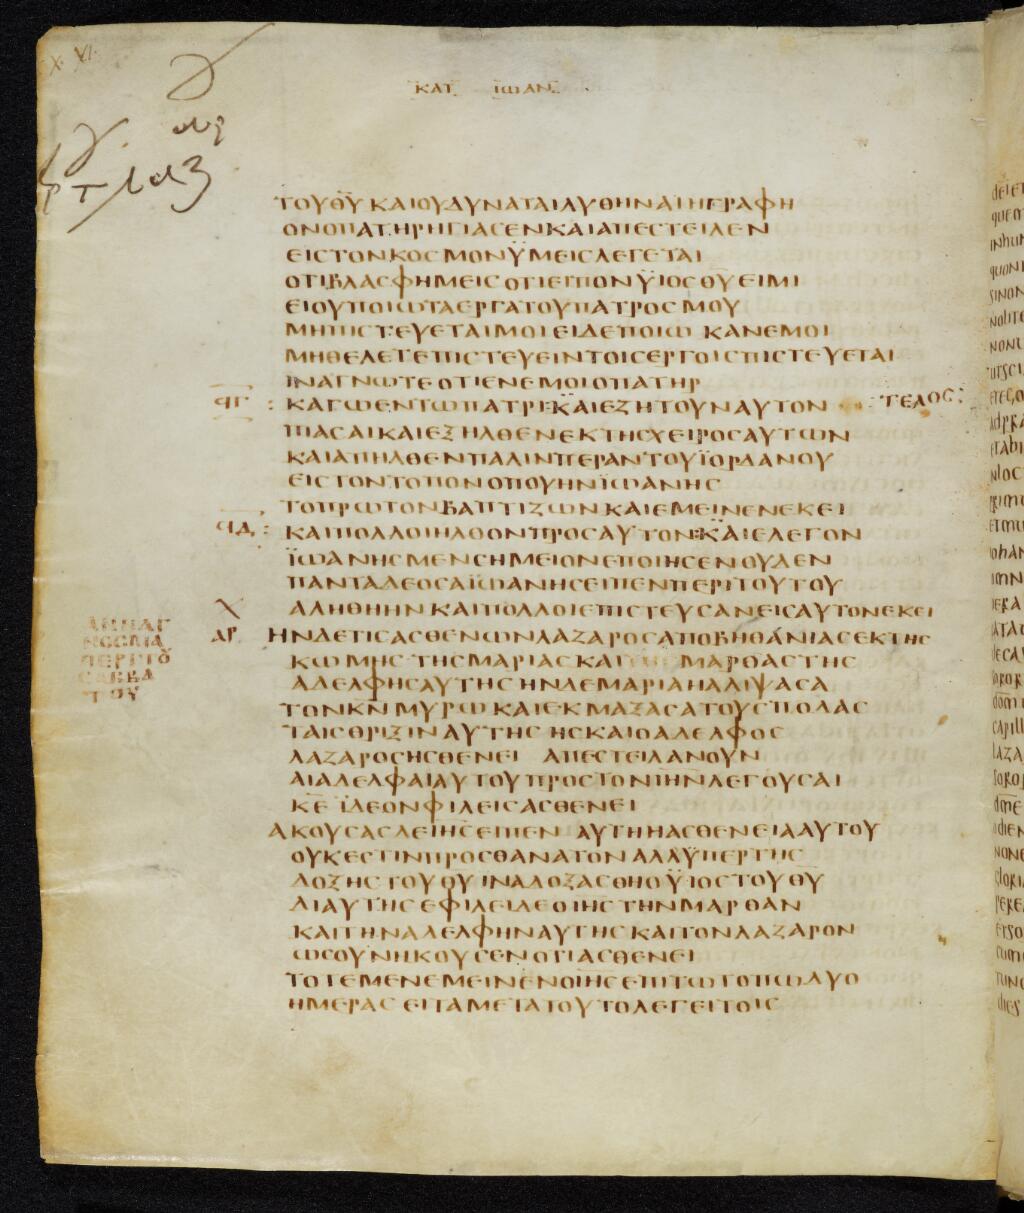 ΚΑΤ ΙΩΑΝ
ΤΟΥ ΘΥ ΚΑΙ ΟΥ ΔΥΝΑΤΑΙ ΛΥΘΗΝΑΙ Η ΓΡΑΦΗ
ΟΝ Ο ΠΑΤΗΡ ΗΓΙΑΣΕΝ ΚΑΙ ΑΠΕΣΤΕΙΛΕΝ
ΕΙΣ ΤΟΝ ΚΟΣΜΟΝ ΫΜΕΙΣ ΛΕΓΕΤΑΙ
ΟΤΙ ΒΛΑΣΦΗΜΕΙΣ ΟΤΙ ΕΙΠΟΝ ΫΙΟΣ ΘΥ ΕΙΜΙ
ΕΙ ΟΥ ΠΟΙΩ ΤΑ ΕΡΓΑ ΤΟΥ ΠΑΤΡΟΣ ΜΟΥ
ΜΗ ΠΙΣΤΕΥΕΤΑΙ ΜΟΙ ΕΙ ΔΕ ΠΟΙΩ ΚΑΝ ΕΜΟΙ
ΜΗ ΘΕΛΕΤΕ ΠΙΣΤΕΥΕΙΝ ΤΟΙΣ ΕΡΓΟΙΣ ΠΙΣΤΕΥΕΤΑΙ
ΙΝΑ ΓΝΩΤΕ ΟΤΙ ΕΝ ΕΜΟΙ Ο ΠΑΤΗΡ
ϤΓ : ΚΑΓΩ ΕΝ ΤΩ ΠΑΤΡΙ ΚΑΙ ΕΖΗΤΟΥΝ ΑΥΤΟΝ ΤΕΛΟΣ:
ΠΙΑΣΑΙ ΚΑΙ ΕΞΗΛΘΕΝ ΕΚ ΤΗΣ ΧΕΙΡΟΣ ΑΥΤΩΝ
ΚΑΙ ΑΠΗΛΘΕΝ ΠΑΛΙΝ ΠΕΡΑΝ ΤΟΥ ΪΟΡΔΑΝΟΥ
ΕΙΣ ΤΟΝ ΤΟΠΟΝ ΟΠΟΥ ΗΝ ΪΩΑΝΗΣ
ΤΟ ΠΡΩΤΟΝ ΒΑΠΤΙΖΩΝ ΚΑΙ ΕΜΕΙΝΕΝ ΕΚΕΙ
ϤΔ : ΚΑΙ ΠΟΛΛΟΙ ΗΛΘΟΝ ΠΡΟΣ ΑΥΤΟΝ ΚΑΙ ΕΛΕΓΟΝ
ΪΩΑΝΗΣ ΜΕΝ ΣΗΜΕΙΟΝ ΕΠΟΙΗΣΕΝ ΟΥΔΕΝ
ΠΑΝΤΑ ΔΕ ΟΣΑ ΪΩΑΝΗΣ ΕΙΠΕΝ ΠΕΡΙ ΤΟΥΤΟΥ
ΑΛΗΘΗ ΗΝ ΚΑΙ ΠΟΛΛΟΙ ΕΠΙΣΤΕΥΣΑΝ ΕΙΣ ΑΥΤΟΝ ΕΚΕΙ
ΑΡ ΗΝ ΔΕ ΤΙΣ ΑΣΘΕΝΩΝ ΛΑΖΑΡΟΣ ΑΠΟ ΒΗΘΑΝΙΑΣ ΕΚ ΤΗΣ
ΑΝΝΑΓ
ΝΟΣΜΑ
ΠΕΡΙ ΤΟΥ
ΣΑΒΒΑ
ΤΟΥ
ΚΩΜΗΣ ΤΗΣ ΜΑΡΙΑΣ ΚΑΙ ΜΑΡΘΑΣ ΤΗΣ
ΑΔΕΛΦΗΣ ΑΥΤΗΣ ΗΝ ΔΕ ΜΑΡΙΑ Η ΑΛΙΨΑΣΑ
ΤΟΝ ΚΝ ΜΥΡΩ ΚΑΙ ΕΚΜΑΖΑΣΑ ΤΟΥΣ ΠΟΔΑΣ
ΤΑΙΣ ΘΡΙΞΙΝ ΑΥΤΗΣ ΗΣ ΚΑΙ Ο ΑΔΕΛΦΟΣ
ΛΑΖΑΡΟΣ ΗΣΘΕΝΕΙ ΑΠΕΣΤΕΙΛΑΝ ΟΥΝ
ΑΙ ΑΔΕΛΦΑΙ ΑΥΤΟΥ ΠΡΟΣ ΤΟΝ ΙΗΝ ΛΕΓΟΥΣΑΙ
ΚΕ ΪΔΕ ΟΝ ΦΙΛΕΙΣ ΑΣΘΕΝΕΙ
ΑΚΟΥΣΑΣ ΔΕ ΙΗΣ ΕΙΠΕΝ ΑΥΤΗ Η ΑΣΘΕΝΕΙΑ ΑΥΤΟΥ
ΟΥΚ ΕΣΤΙΝ ΠΡΟΣ ΘΑΝΑΤΟΝ ΑΛΛ ΫΠΕΡ ΤΗΣ
ΔΟΞΗΣ ΤΟΥ ΘΥ ΙΝΑ ΔΟΞΑΣΘΗ Ο ΫΙΟΣ ΤΟΥ ΘΥ
ΔΙ ΑΥΤΗΣ ΕΦΙΛΕΙ ΔΕ Ο ΙΗΣ ΤΗΝ ΜΑΡΘΑΝ
ΚΑΙ ΤΗΝ ΑΔΕΛΦΗΝ ΑΥΤΗΣ ΚΑΙ ΤΟΝ ΛΑΖΑΡΟΝ
ΩΣ ΟΥΝ ΗΚΟΥΣΕΝ ΟΤΙ ΑΣΘΕΝΕΙ
ΤΟΤΕ ΜΕΝ ΕΜΕΙΝΕΝ Ο ΙΗΣ ΕΠΙ ΤΩ ΤΟΠΩ ΔΥΟ
ΗΜΕΡΑΣ ΕΙΤΑ ΜΕΤΑ ΤΟΥΤΟ ΛΕΓΕΙ ΤΟΙΣ